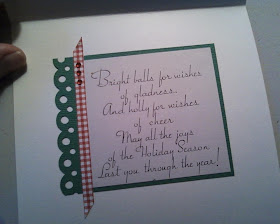 Bright balls for wishes
of gladness,
And holly for wishes
of cheer
May all the joys
of the Holiday Season
Last you through the year!